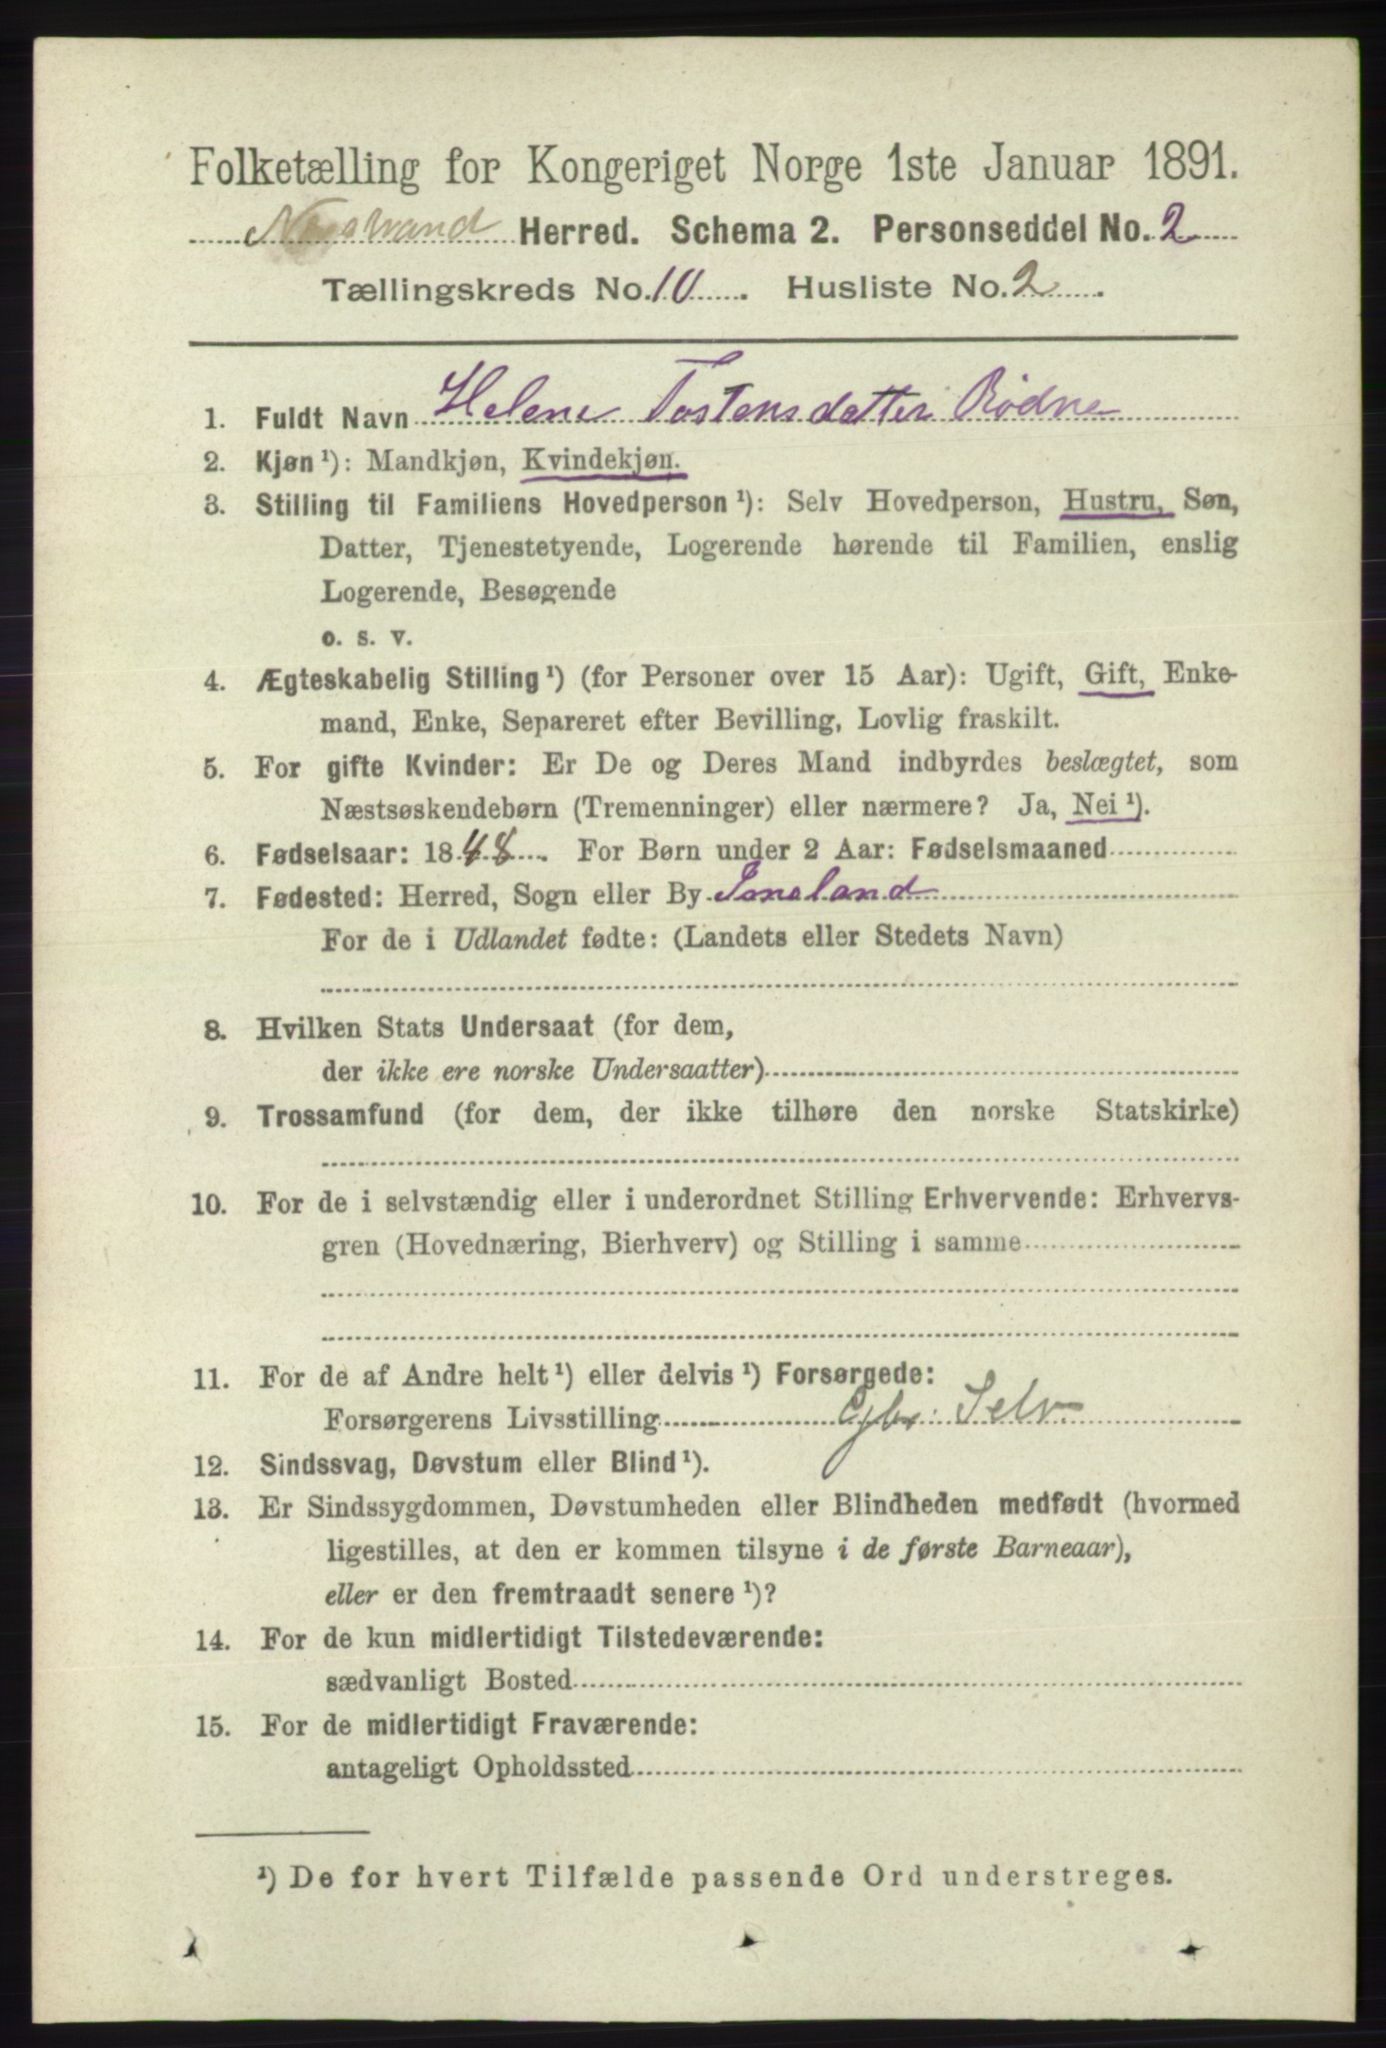 Folketælling for Kongeriget Norge 1ste Januar 1891.
Nærstrand Herred. Schema 2. Personseddel No. 2
Tællingskreds No. 10. Husliste No. 2.
1. Fuldt Navn Helene Tostensdatter Rødne
2. Kjøn ¹): Mandkjøn, Kvindekjøn.
3. Stilling til Familiens Hovedperson ¹): Selv Hovedperson, Hustru, Søn,
Datter, Tjenestetyende, Logerende hørende til Familien, enslig
Logerende, Besøgende
o. s. v.
4. Ægteskabelig Stilling ¹) (for Personer over 15 Aar): Ugift, Gift, Enke-
mand, Enke, Separeret efter Bevilling, Lovlig fraskilt.
5. For gifte Kvinder: Er De og Deres Mand indbyrdes beslægtet, som
Næstsøskendebørn (Tremenninger) eller nærmere? Ja, Nei ¹).
6. Fødselsaar: 1848. For Børn under 2 Aar: Fødselsmaaned
7. Fødested: Herred, Sogn eller By
For de i Udlandet fødte: (Landets eller Stedets Navn)
8. Hvilken Stats Undersaat (for dem,
der ikke ere norske Undersaatter)
9. Trossamfund (for dem, der ikke tilhøre den norske Statskirke)
10. For de i selvstændig eller i underordnet Stilling Erhvervende: Erhvervs-
gren (Hovednæring, Bierhverv) og Stilling i samme
11. For de af Andre helt ¹) eller delvis ¹) Forsørgede:
Forsørgerens Livsstilling Gbr. Selv.
12. Sindssvag, Døvstum eller Blind ¹).
13. Er Sindssygdommen, Døvstumheden eller Blindheden medfødt (hvormed
ligestilles, at den er kommen tilsyne i de første Barneaar),
eller er den fremtraadt senere ¹)?
14. For de kun midlertidigt Tilstedeværende:
sædvanligt Bosted
15. For de midlertidigt Fraværende:
antageligt Opholdssted
¹) De for hvert Tilfælde passende Ord understreges.